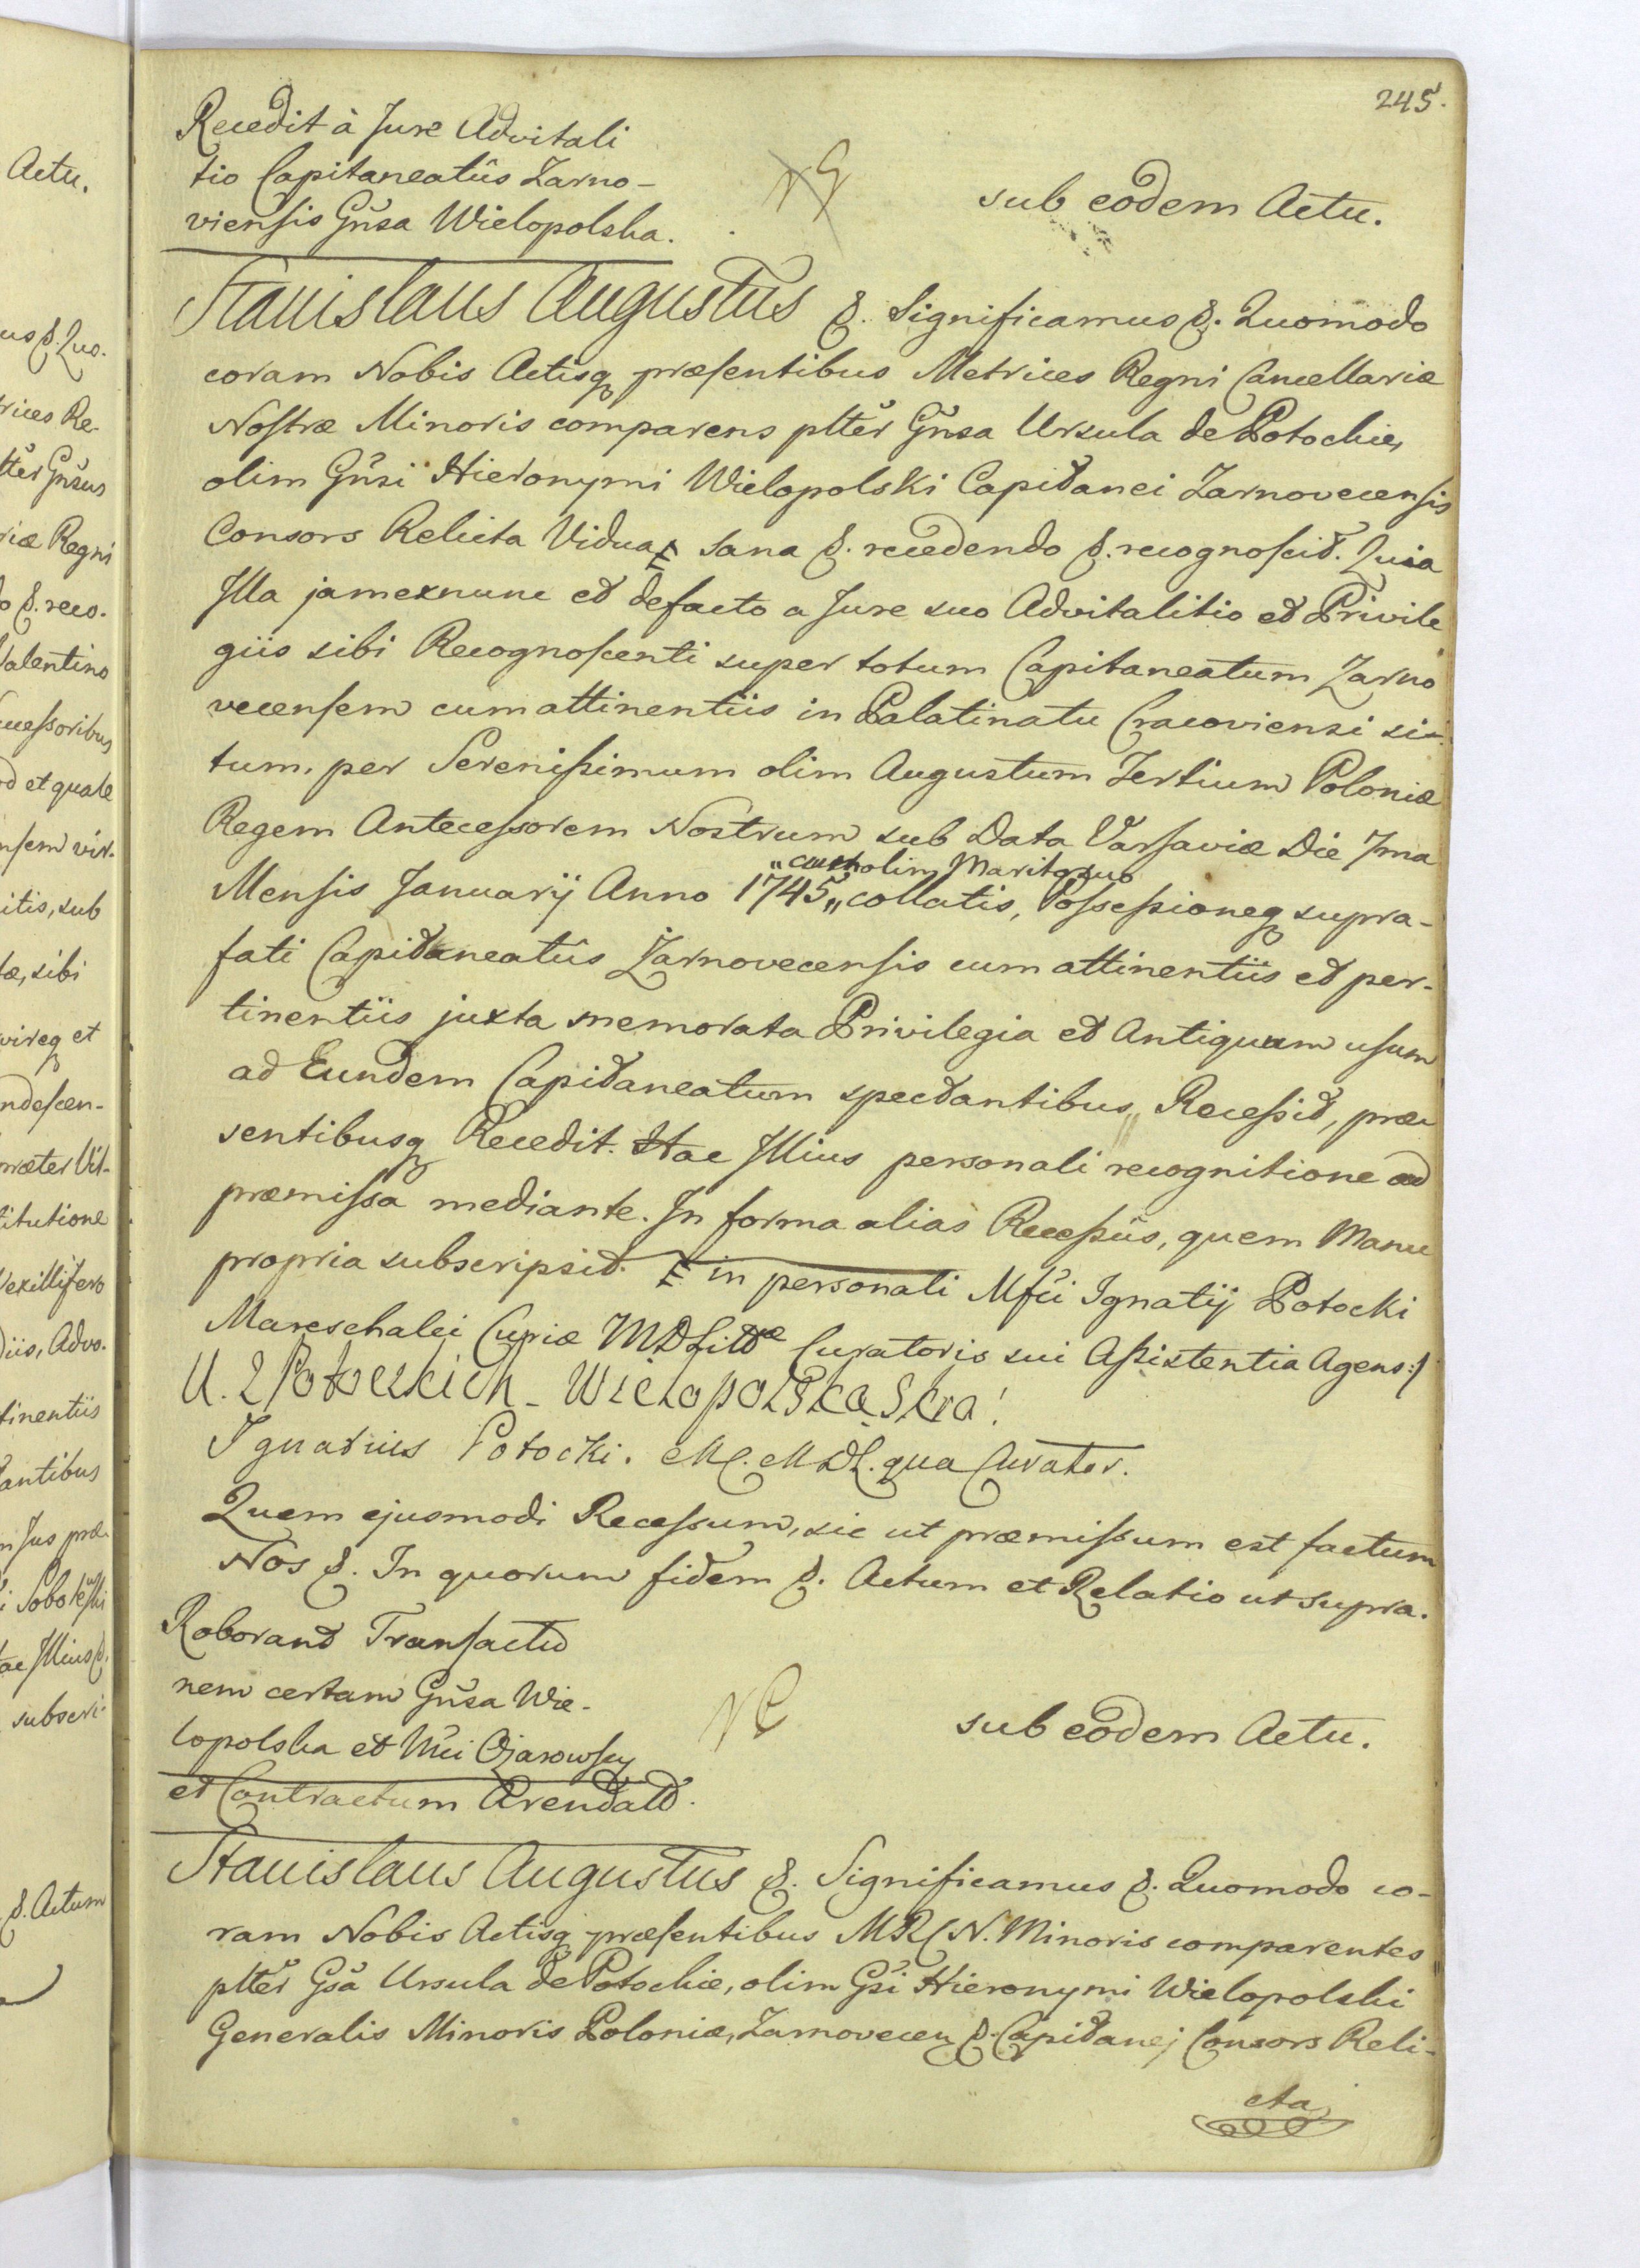 245.
Recedit à Jure Advitali
tio Capitaneatûs Zarno-
viensis Gnsa Wielopolska.
sub eodem Actu.
Stanislaus Augustus &. Significamus &. Quomodo
coram Nobis Actisq præsentibus Metrices Regni Cancellariæ
Nostræ Minoris comparens pltêr Gnsa Ursula de Potockie,
olim Gnsi Hieronymi Wielopolski Capitanei Zarnovecensis
Consors Relicta Vidua sana &. recedendo &. recognoscit. Quia
Illa jamexnunc et defacto a Jure suo Advitalitio et Privile
giis sibi Recognoscenti super totum Capitaneatum Zarno
vecensem cum attinentiis in Palatinatu Cracoviensi si-
tum, per Serenissimum olim Augustum Tertium Poloniæ
Regem Antecessorem Nostrum sub Data Varsaviæ Die 7ma
„cum olim Marito suo
Mensis Januarij Anno 1745 „ collatis, Possessioneq supra-
fati Capitaneatûs Zarnovecensis cum attinentiis et per-
tinentiis juxta memorata Privilegia et Antiquum usum
ad Eundem Capitaneatum spectantibus „ Recessit, præ
sentibusq Recedit. Hac Illius personali recognitione ad
præmissa mediante. In forma alias Recessûs, quem Manu
propria subscripsit. in personali Mfci Ignatij Potocki
Mareschalci Curiæ MDLittæ Curatoris sui Assistentia Agens:/
U. z Potockich Wielopolska Skra!
Ignatius Potocki. MC. MDL. qua Curator.
Quem ejusmodi Recessum, sic ut præmissum est factum
Nos &. In quorum fidem &. Actum et Relatio ut supra.
Roborand Transactio
nem certam Gnsa Wie-
lopolska et Mci Ożarowscy
et Contractum Arendatt.
sub eodem Actu.
Stanislaus Augustus &. Significamus &. Quomodo co-
ram Nobis Actisq præsentibus MRC N. Minoris comparentes
pltêr Gsa Ursula de Potockie, olim Gsi Hieronymi Wielopolski
Generalis Minoris Poloniæ, Zarnovecen &. Capitanej Consors Reli-
cta